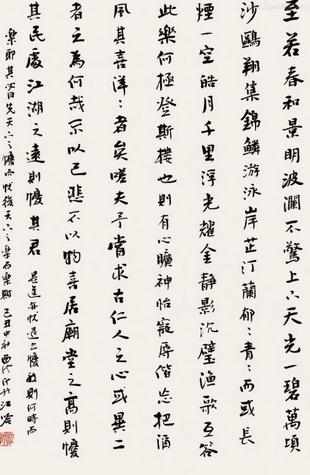 至若春和景明波瀾不驚上下天光一碧萬頃
沙鷗翔集錦鱗游泳岸芷汀蘭郁:青:而或長
煙一空皓月千里浮光耀金靜影沉璧漁歌互答
此樂何極登斯樓也則有心曠神怡寵辱偕忘把酒
風其喜洋:者矣嗟夫予嘗求古仁人之心或異二
者之為何哉不以己悲不以物喜居廟堂之高則懮
其民處江湖之遠則懮其君 是進亦懮退亦懮然則何時而
樂耶其曰先天下之懮而懮後天下之樂而樂歟 己丑中秋